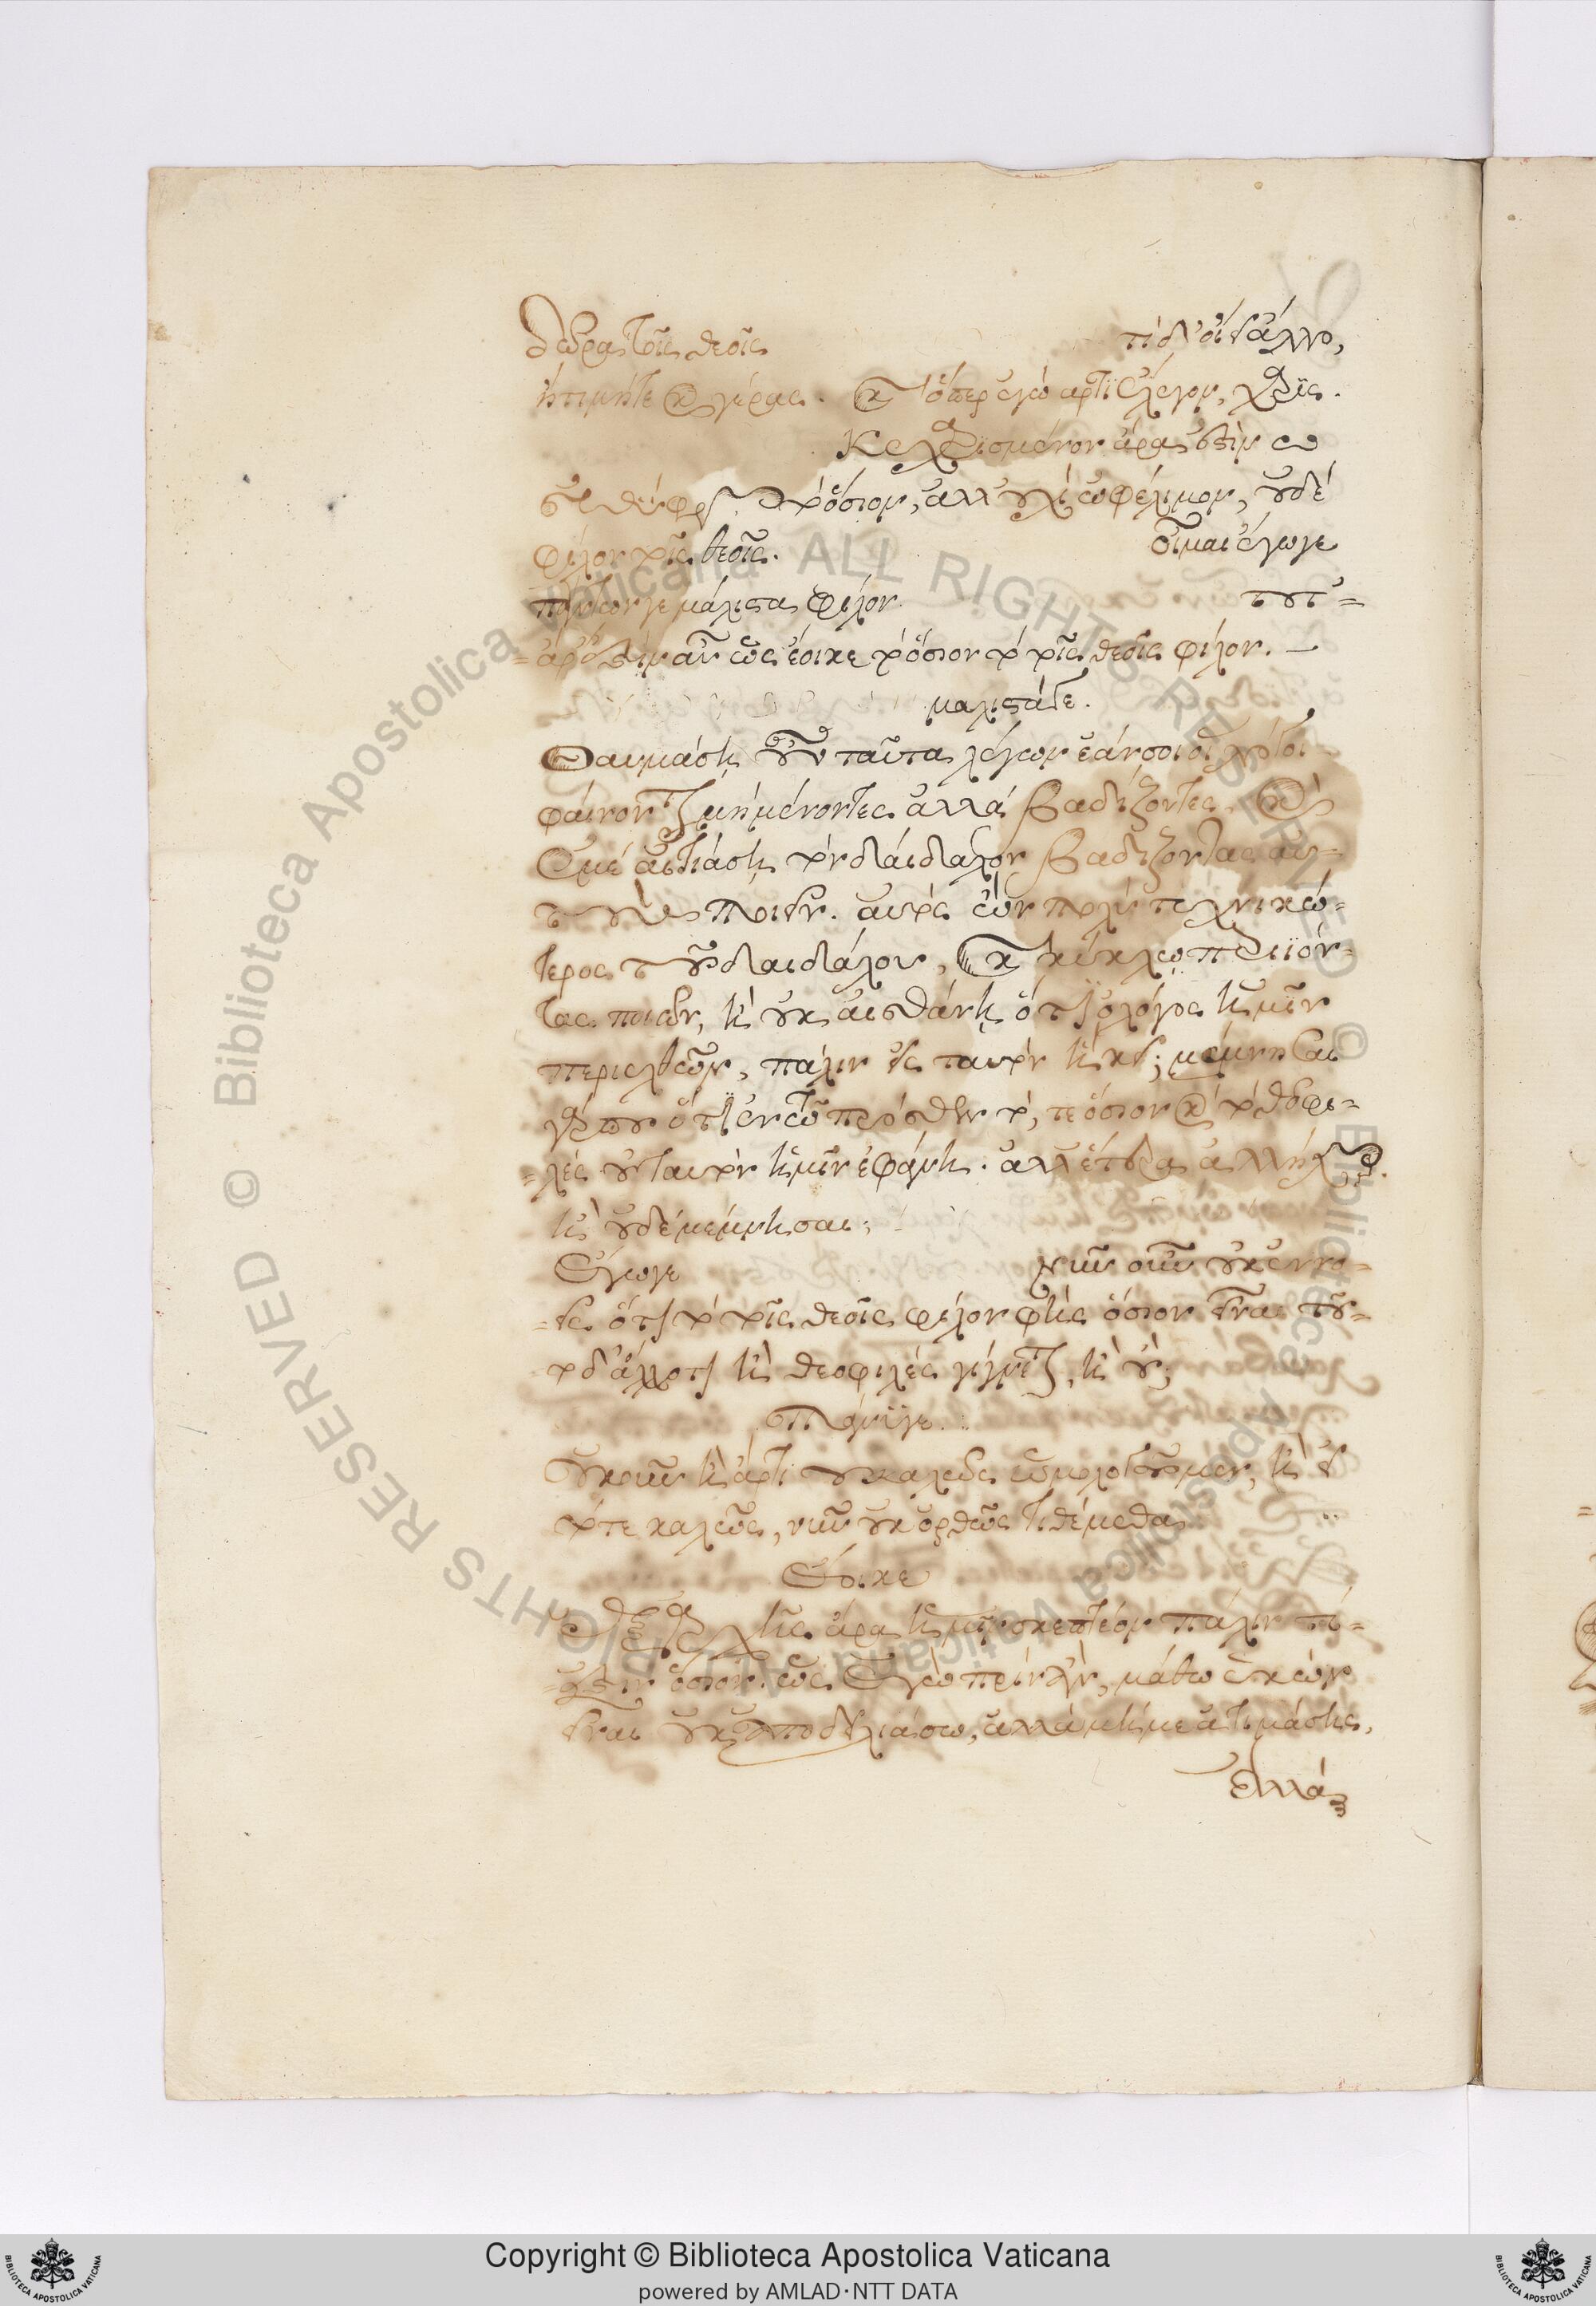 δῶρα τοῖς θεοῖς τί δ' οἴει ἄλλο,
ἢ τιμή τε καὶ γέρας. καὶ ὅπερ ἐγὼ ἄρτι ἔλεγον, χάρις.
Κεχαρισμένον ἄρα ἐστὶν ὦ
εὐθύφρον τὸ ὅσιον, ἀλλ' οὐχὶ ὠφέλιμον, οὐδέ
φίλον τοῖς θεοῖς. οἶμαι ἔγωγε
πάντων γε μάλιστα φίλον. τοῦτ'=
=ἄρ' ἐστὶν αὖ ὡς ἔοικε τὸ ὅσιον τὸ τοῖς θεοῖς φίλον.
μάλιστά γε.
Θαυμάσῃ οὖν ταῦτα λέγων ἐάν σοι οἱ λόγοι
φαίνονται μὴ μένοντες ἀλλά βαδίζοντες, καὶ
ἐμέ αἰτιάσῃ τὸν δαίδαλον βαδίζοντας αὐ=
τοὺς ποιεῖν. αὐτός ὢν πολύ τεχνικώ=
τερος τοῦ δαιδάλου, καὶ κύκλῳ περιϊόν=
τας ποιῶν, ἢ οὐκ αἰσθάνῃ ὅτι ὁ λόγος ἡμῖν
περιελθὼν, πάλιν εἰς ταυτὸν ἥκει; μέμνησαι
γάρ που ὅτι ἐν τῷ πρόσθεν τό, τε ὅσιον καὶ τὸ θεοφι=
=λές οὐ ταυτὸν ἡμῖν ἐφάνη. ἀλλ' ἕτερα ἀλλήλων.
ἢ οὐδέ μέμνησαι;
Ἔγωγε νῦν οὖν οὐκ ἐννο=
=εῖς ὅτι τὸ τοῖς θεοῖς φίλον φῂς ὅσιον εἶναι τοῦ=
το δ' ἄλλο τι ἢ θεοφιλές γίγνεται, ἢ οὔ;
πάνυ γε.
Οὐκοῦν ἢ ἄρτι οὐ καλῶς ὡμολογοῦμεν, ἢ εἰ
τότε καλῶς, νῦν οὐκ ὀρθῶς τιθέμεθα
Ἔοικε
ἐξ ἀρχῆς ἄρα ἡμῖν σκεπτέον πάλιν τί=
=ἐστιν ὅσιον. ὡς ἐγὼ πρίν ἂν, μάθω ἑκὼν
εἶναι οὐκ ἀποδειλιάσω, ἀλλὰ μή με ἀτιμάσῃς,
ἀλλὰ
Copyright © Biblioteca Apostolica Vaticana
powered by AMLAD·NTT DATA